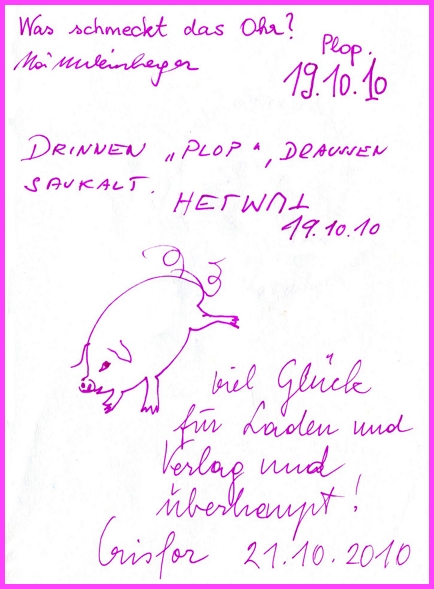 Was schmeckt das Ohr?
Plop.
19.10.10
DRINNEN „PLOP“, DRAUSSEN
SAUKALT.
19.10.10
viel Glück
für Laden und
Verlag und
überhaupt!
21.10.2010